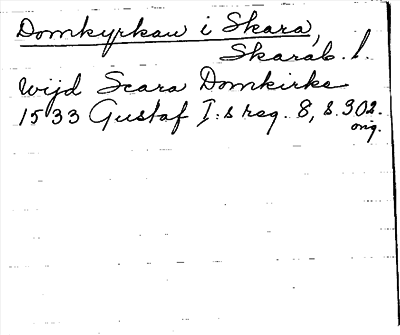 Domkyrkan i Skara,
Skarab. l.
wijd Scara Domkirke
1533 Gustaf I:s reg. 8, s. 302.
orig.